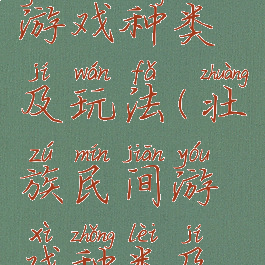 游戏种类
jí wán fǎ zhuàng
及玩法(壮
zú mín jiān yóu
族民间游
xì zhǒng lèi jí
戏种类及